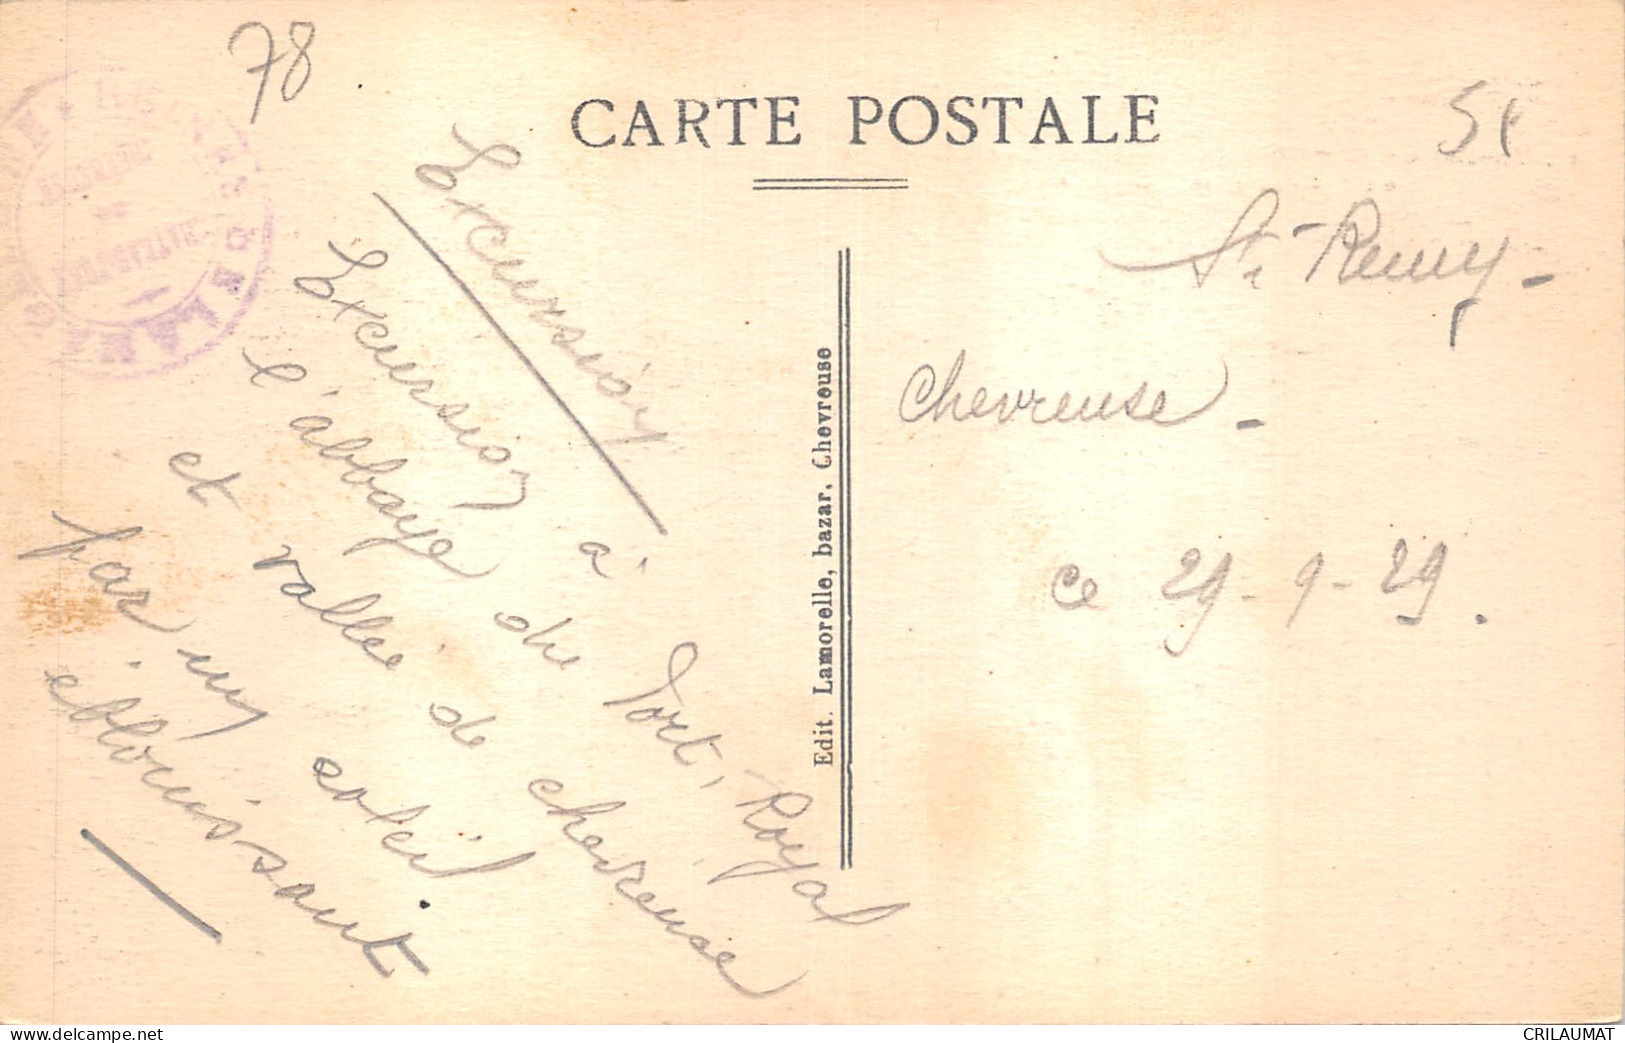 78
CARTE POSTALE
St-Remy-
Chevreuse-
ce 29-9-29.
Edit. Lamorelle, bazar, Chevreuse
Excursion
Excursion à
l'abbaye de Port, Royal
et vallée de chevreuse
par un soleil
éblouissant
www.delcampe.net
CRILAUMAT